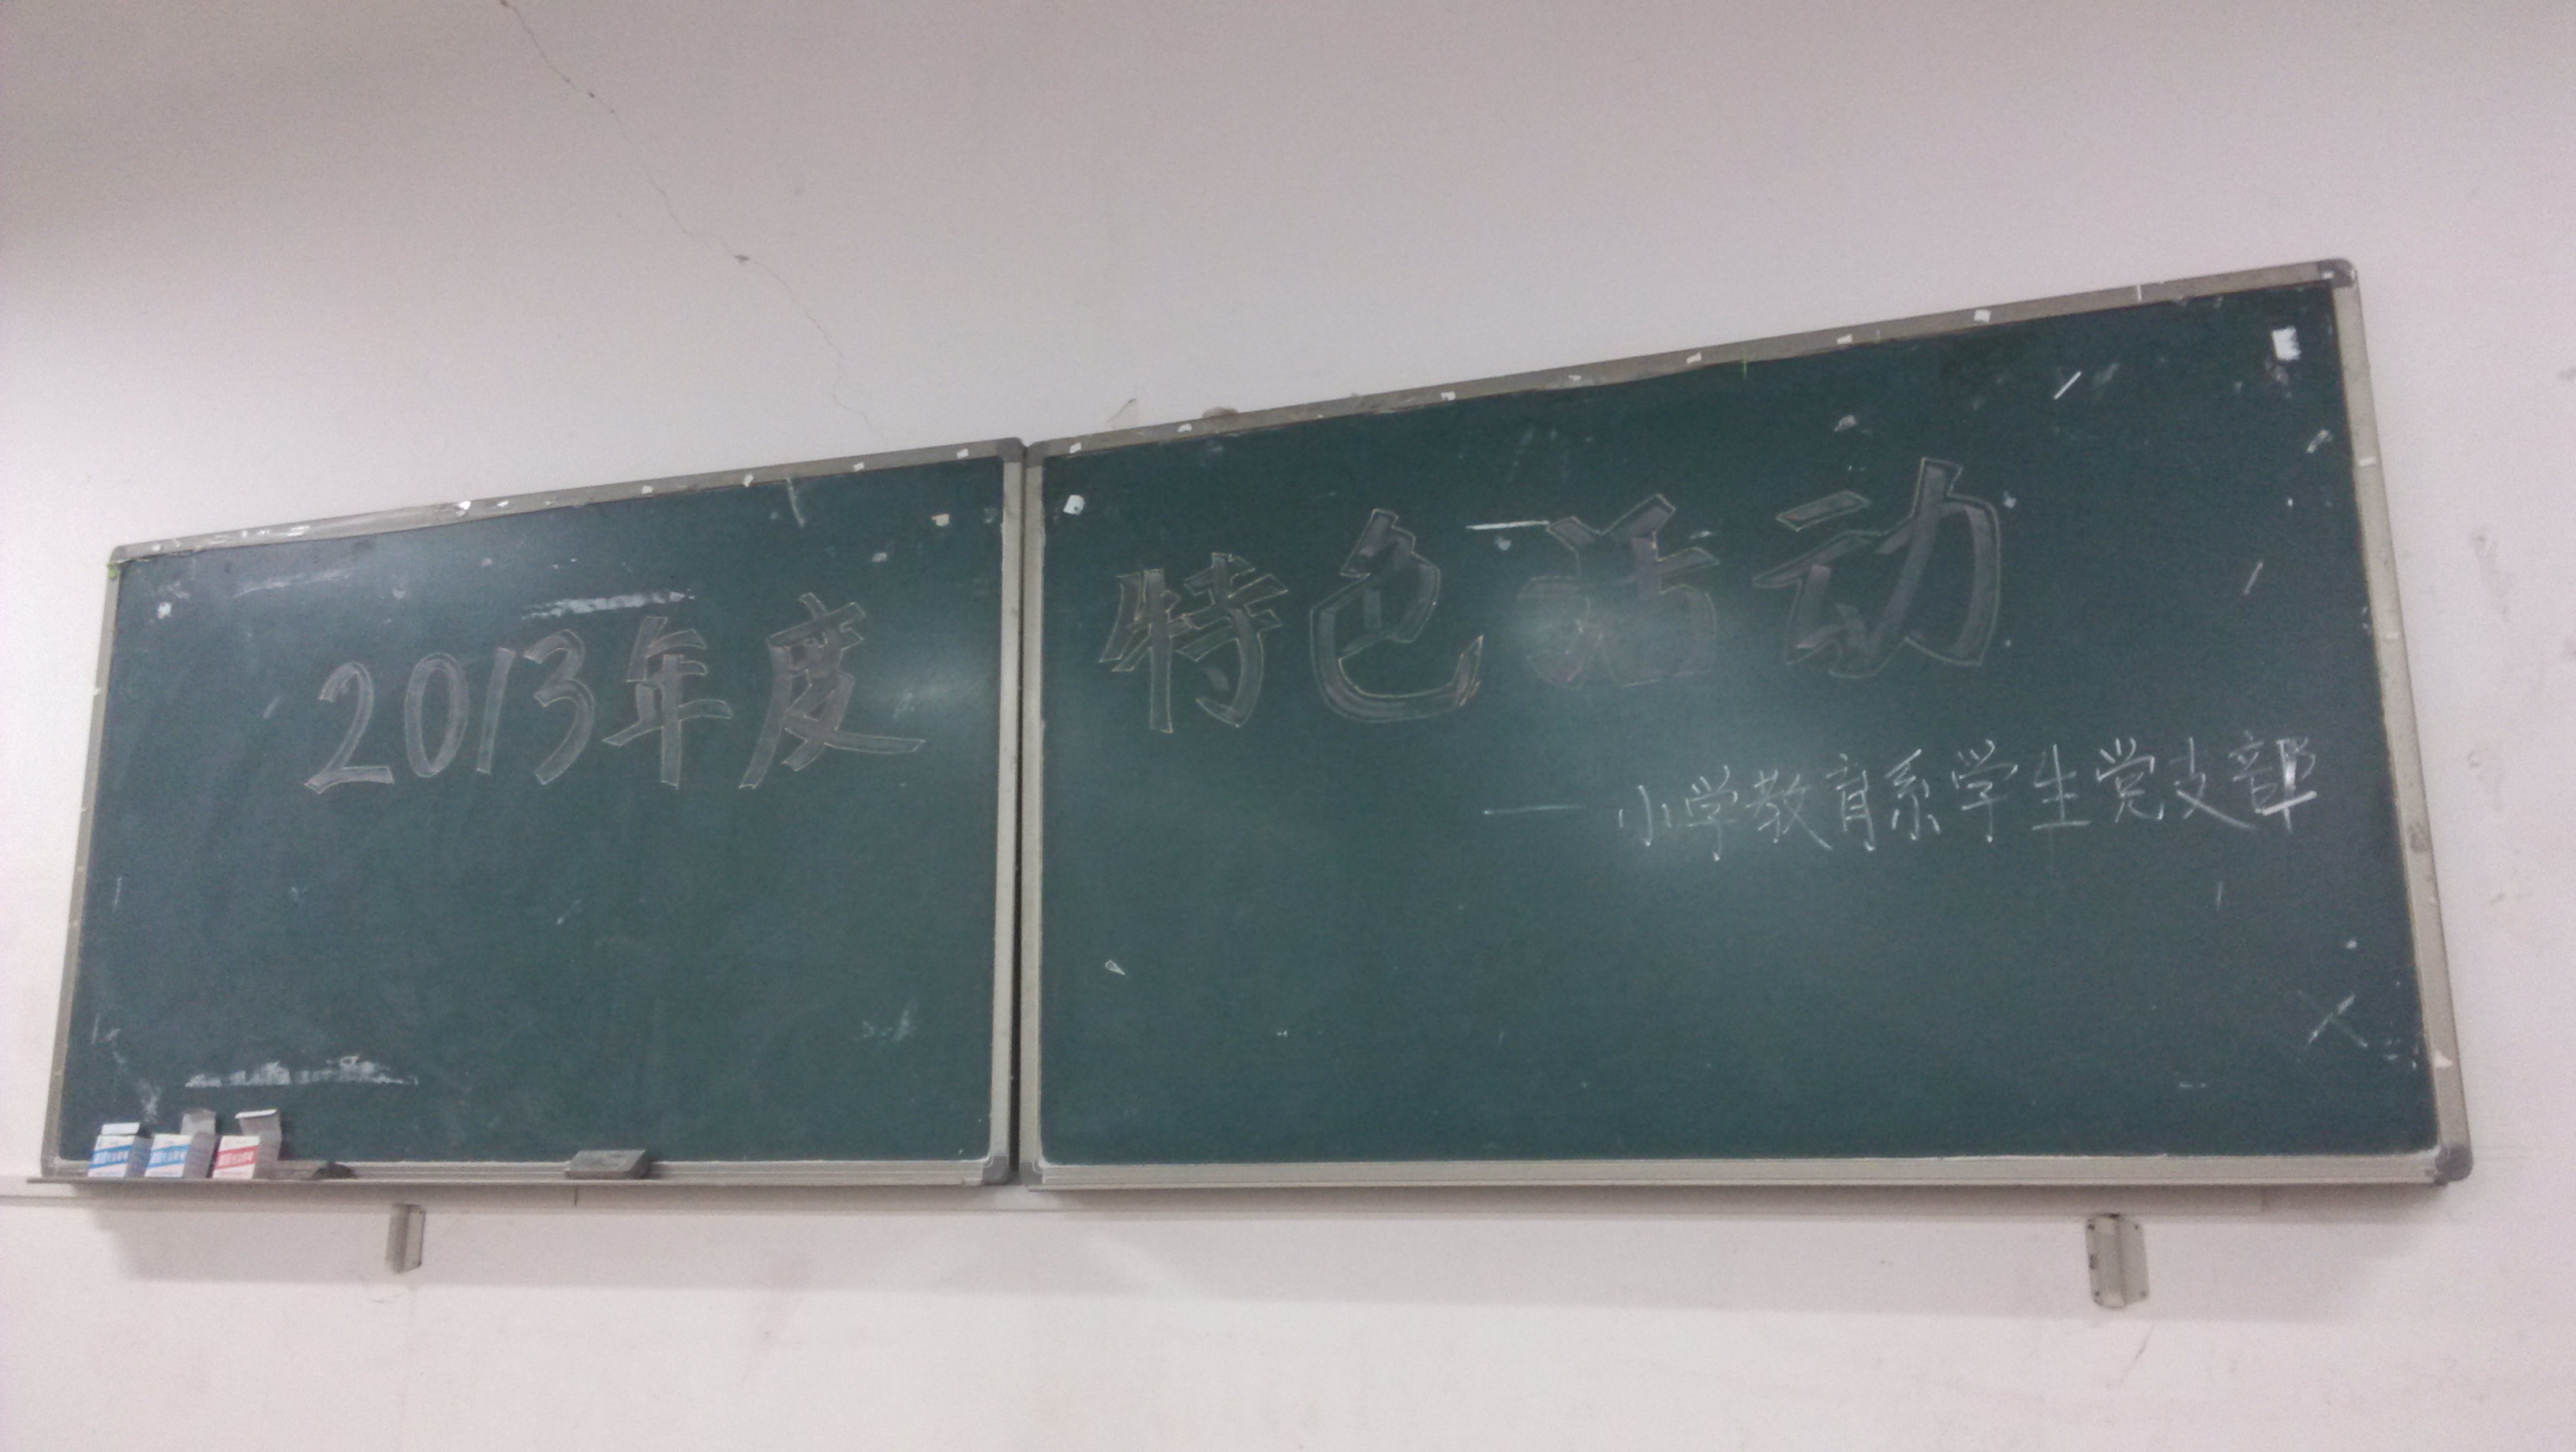 2013年度特色活动
—小学教育系学生党支部